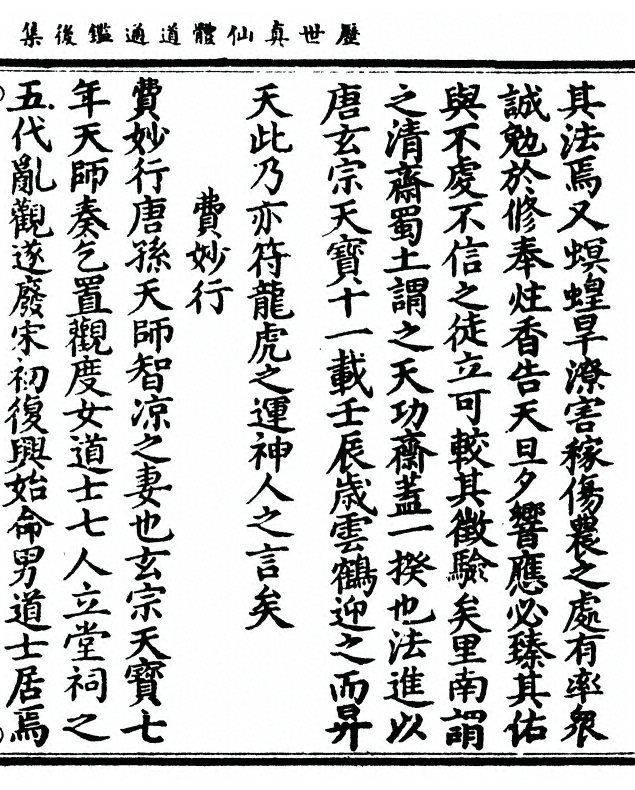 歷世真仙體道通鑑後集
其法焉又螟蝗旱潦害稼傷農之處有率衆
誠勉於修奉炷香告天旦夕響應必臻其佑
與不虔不信之徒立可較其徵驗矣里南謂
之清齋蜀土謂之天功齋蓋一揆也法進以
唐玄宗天寶十一載壬辰歲雲鶴迎之而昇
天此乃亦符龍虎之運神人之言矣
費妙行
費妙行唐孫天師智凉之妻也玄宗天寶七
年天師奏乞置觀度女道士七人立堂祠之
五代亂觀遂廢宋初復興始命男道士居焉